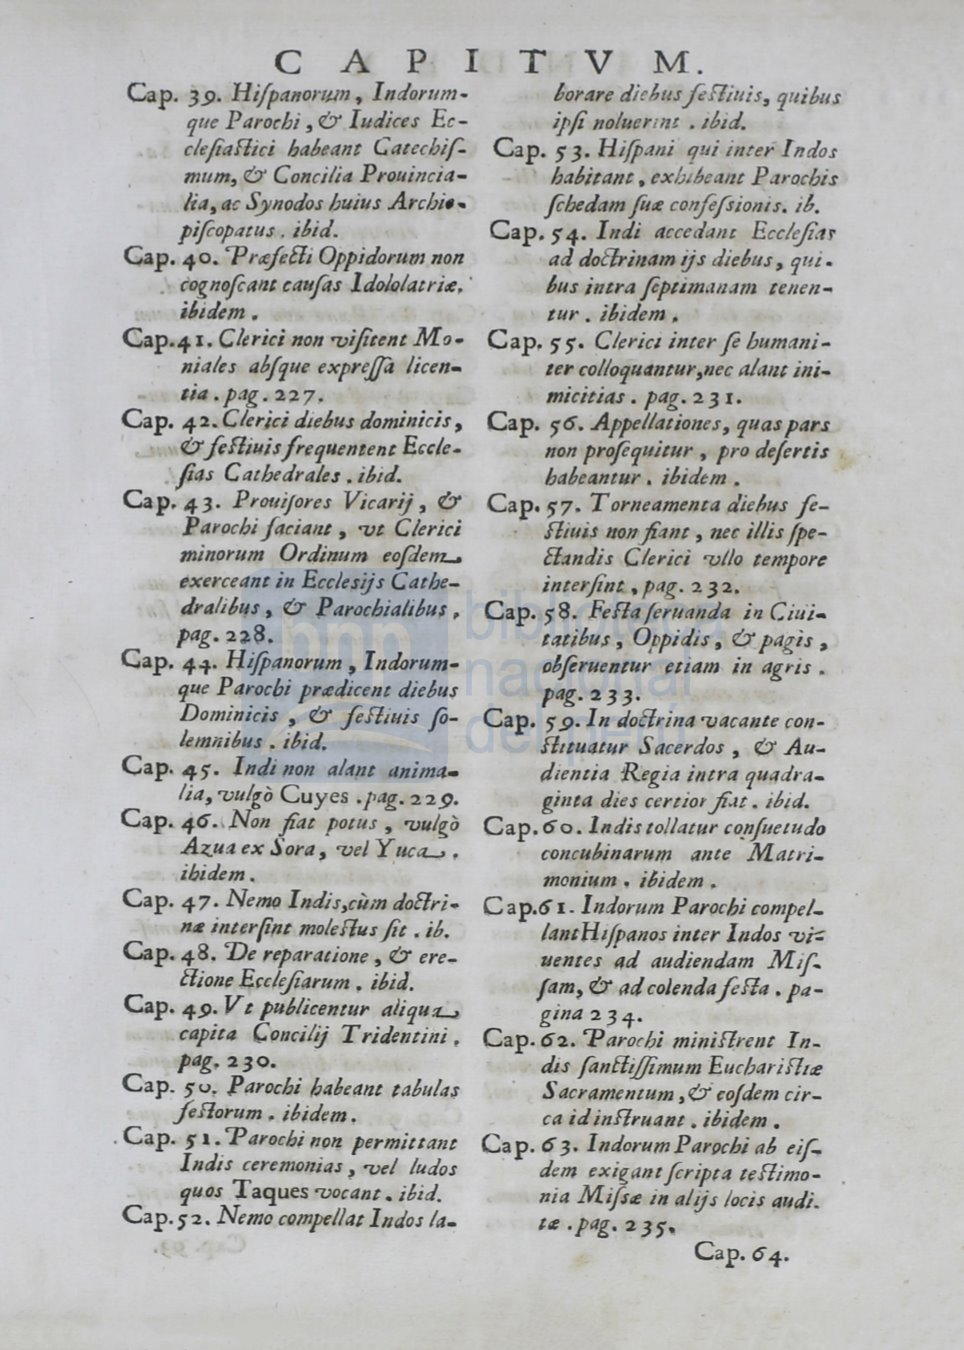 CAPITVM.
Cap. 39. Hiſpanorum, Indorum-
que Parochi, & Iudices Ec-
cleſiaſtici habeant Catechiſ-
mum, & Concilia Prouincia-
lia, ac Synodos huius Archie-
piſcopatus. ibid.
Cap. 40. Præfecti Oppidorum non
cognoſcant cauſas Idololatriæ.
ibidem.
Cap. 41. Clerici non viſitent Mo-
niales abſque expreſſa licen-
tia. pag. 227.
Cap. 42. Clerici diebus dominicis,
& feſtiuis frequentent Eccle-
ſias Cathedrales. ibid.
Cap. 43. Prouiſores Vicarij, &
Parochi faciant, vt Clerici
minorum Ordinum eoſdem
exerceant in Ecclesijs Cathe-
dralibus, & Parochialibus.
pag. 228.
Cap. 44. Hiſpanorum, Indorum-
que Parochi prædicent diebus
Dominicis, & feſtiuis ſo-
lemnibus. ibid.
Cap. 45. Indi non alant anima-
lia, vulgò Cuyes. pag. 229.
Cap. 46. Non fiat potus, vulgò
Azua ex Sora, vel Yuca.
ibidem.
Cap. 47. Nemo Indis, cùm doctri-
næ interſint moleſtus ſit. ib.
Cap. 48. De reparatione, & ere-
ctione Eccleſiarum. ibid.
Cap. 49. Vt publicentur aliqua
capita Concilij Tridentini.
pag. 230.
Cap. 50. Parochi habeant tabulas
feſtorum. ibidem.
Cap. 51. Parochi non permittant
Indis ceremonias, vel ludos
quos Taques vocant. ibid.
Cap. 52. Nemo compellat Indos la-
borare diebus feſtiuis, quibus
ipſi noluerint. ibid.
Cap. 53. Hiſpani qui inter Indos
habitant, exhibeant Parochis
ſchedam ſuæ confeſsionis. ib.
Cap. 54. Indi accedant Eccleſias
ad doctrinam ijs diebus, qui-
bus intra ſeptimanam tenen-
tur. ibidem.
Cap. 55. Clerici inter ſe humani-
ter colloquantur, nec alant ini-
micitias. pag. 231.
Cap. 56. Appellationes, quas pars
non proſequitur, pro deſertis
habeantur. ibidem.
Cap. 57. Torneamenta diebus fe-
ſtiuis non fiant, nec illis ſpe-
ctandis Clerici vllo tempore
interſint, pag. 232.
Cap. 58. Feſta ſeruanda in Ciui-
tatibus, Oppidis, & pagis,
obſeruentur etiam in agris.
pag. 233.
Cap. 59. In doctrina vacante con-
ſtituatur Sacerdos, & Au-
dientia Regia intra quadra-
ginta dies certior fiat. ibid.
Cap. 60. Indis tollatur conſuetudo
concubinarum ante Matri-
monium. ibidem.
Cap. 61. Indorum Parochi compel-
lant Hiſpanos inter Indos vi-
uentes ad audiendam Miſ-
ſam, & ad colenda feſta. pa-
gina 234.
Cap. 62. Parochi miniſtrent In-
dis ſanctiſſimum Euchariſtiæ
Sacramentum, & eoſdem cir-
ca id inſtruant. ibidem.
Cap. 63. Indorum Parochi ab eiſ-
dem exigant ſcripta teſtimo-
nia Miſsæ in alijs locis audi-
tæ. pag. 235.
Cap. 64.
bnp biblioteca
nacional
del perú